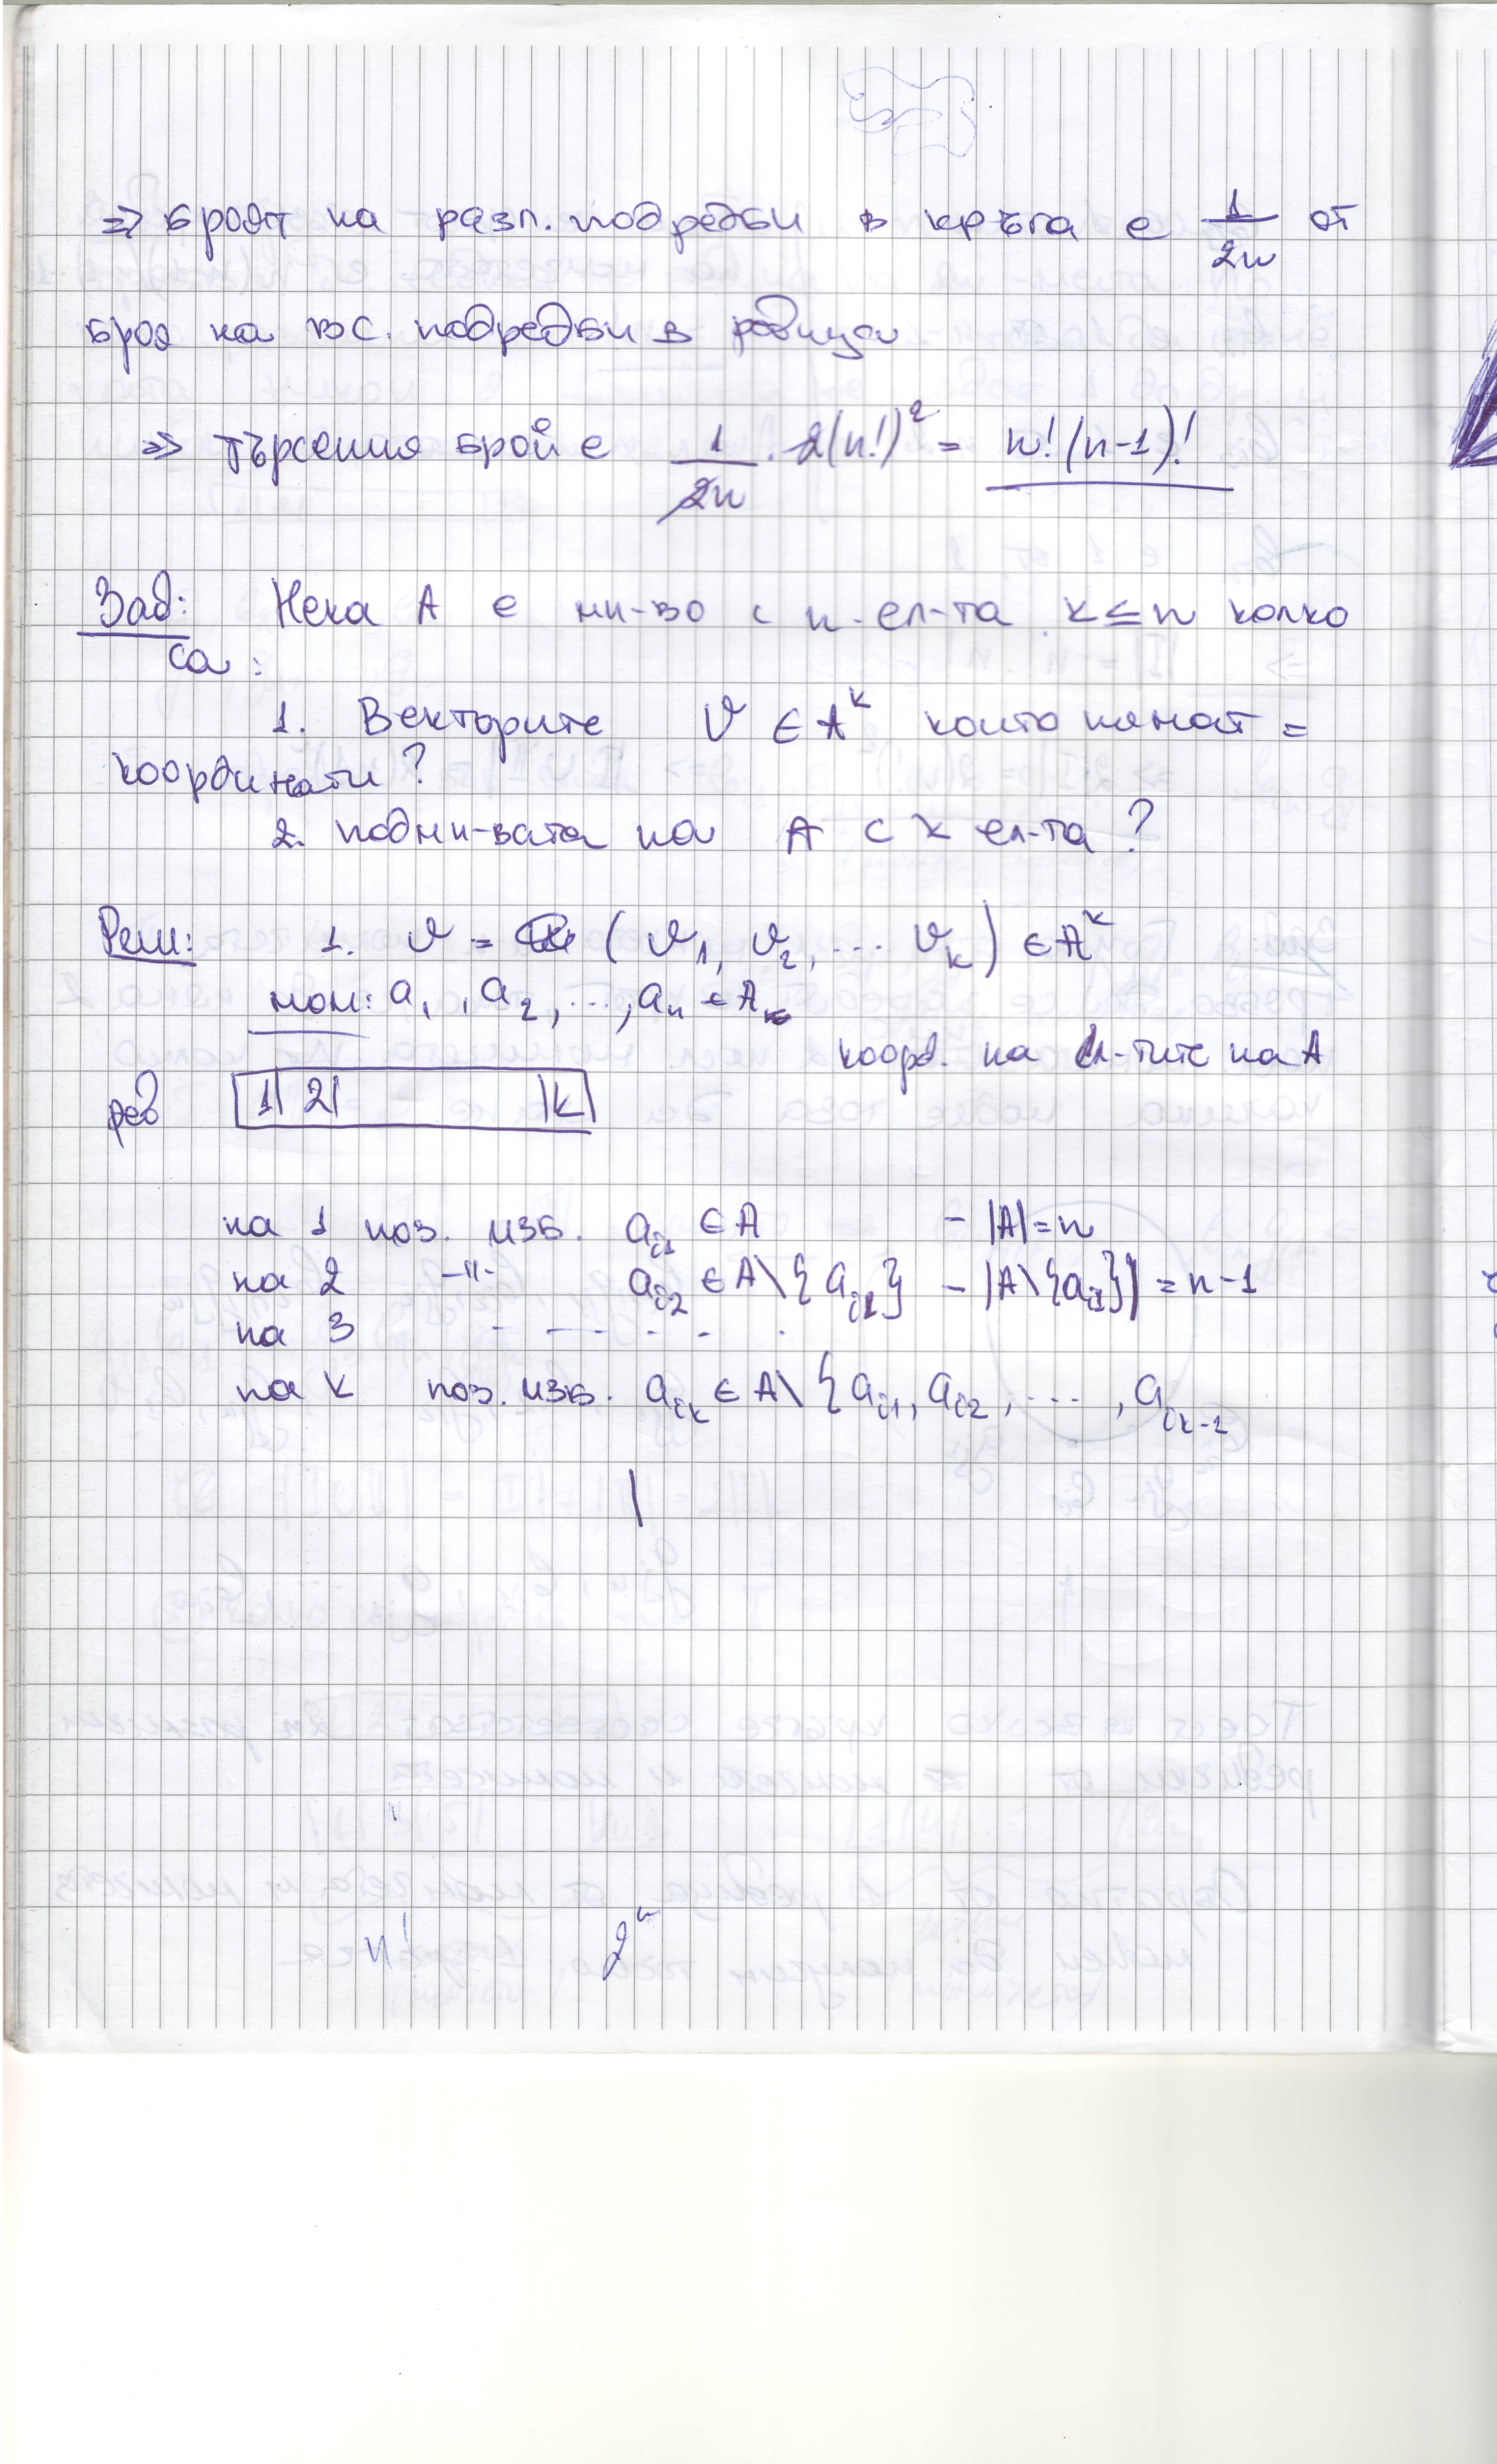 => броят на разл. подредби в кръга е 1/2n от
броя на вс. подредби в редица
=> търсения брой е 1/2n . 2(n!)² = n!(n-1)!
Зад: Нека А е мн-во с n ел-та. k ≤ n колко
са:
1. Векторите v ∈ A^k които нямат =
координати?
2. подмн-вата на A с k ел-та?
Реш: 1. v = (v₁, v₂, ... v_k) ∈ A^k
a₁, a₂, ..., a_n ∈ A
коорд. на ел-тите на A
1 2 k
на 1 поз. изб. a_i1 ∈ A - |A| = n
на 2 -"- a_i2 ∈ A\{a_i1} - |A\{a_i1}| = n-1
на 3 - - - - - -
на k поз. изб. a_ik ∈ A\{a_i1, a_i2, ..., a_ik-1
n! 2^n